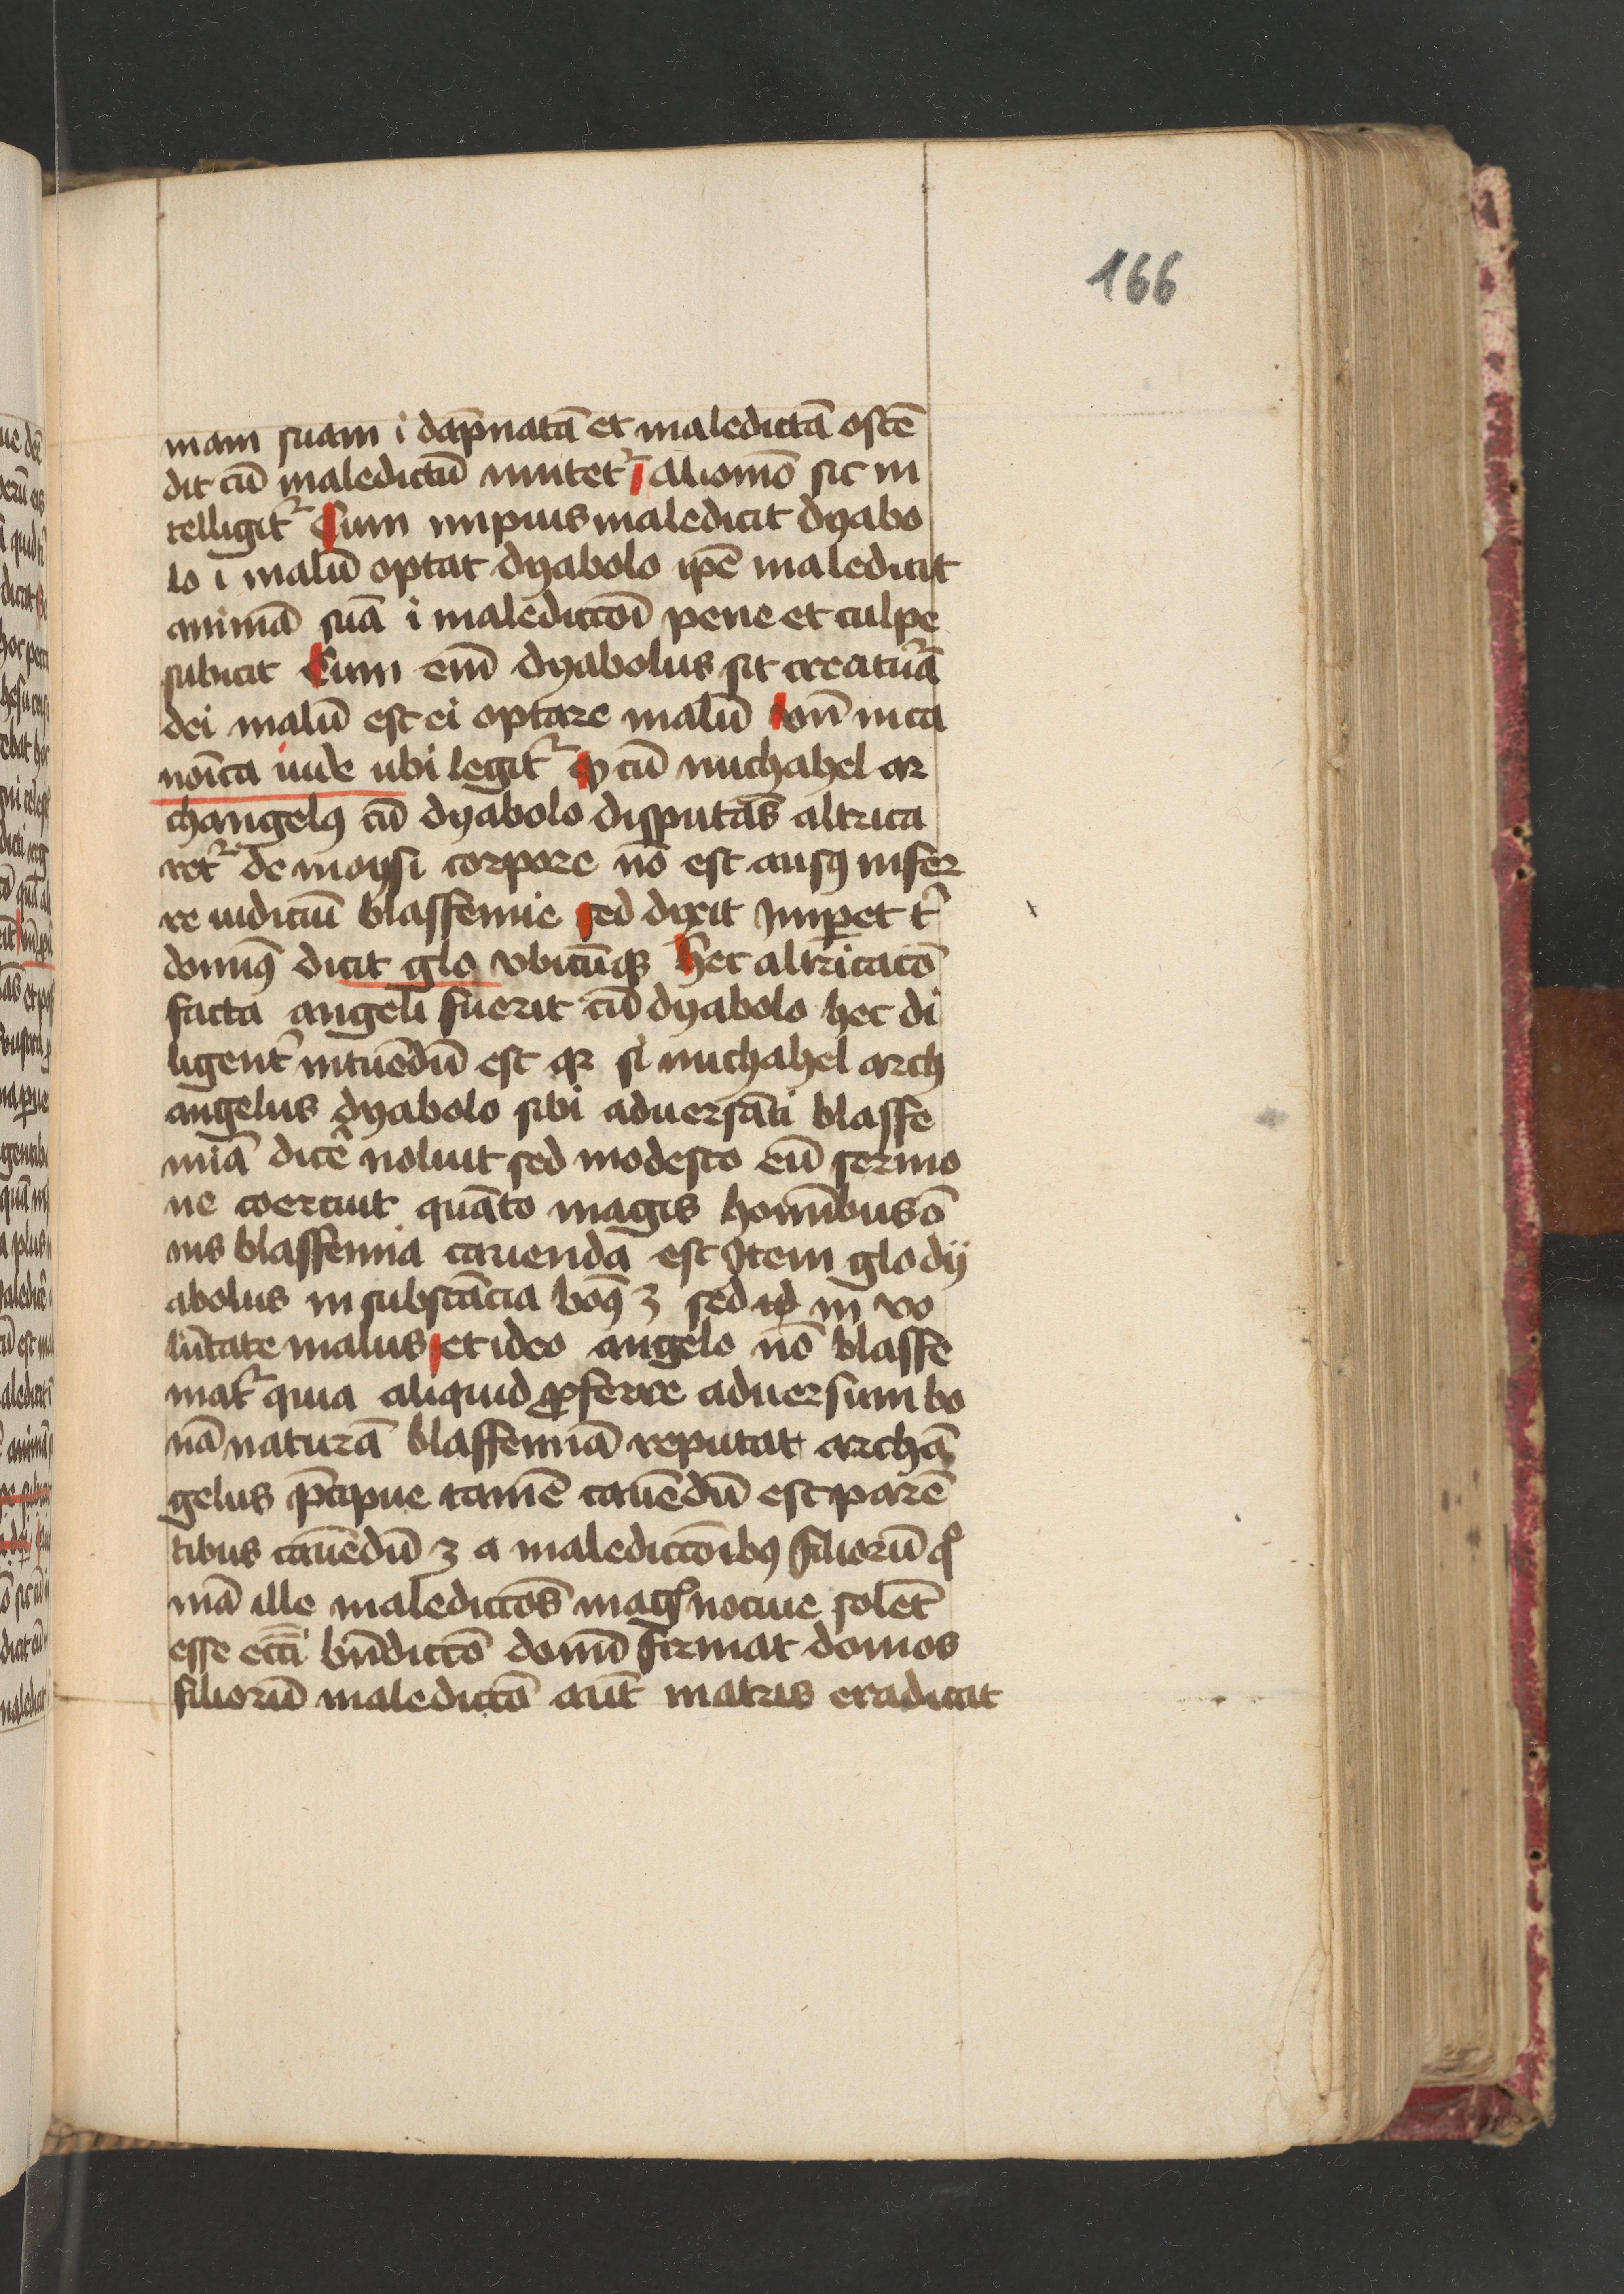 166
mam suam i dāpnatā et maledictā ostē
dit cū maledictū mittet᷑ Aliomō sic in
telligit᷑ Cum impius maledicit dyabo
lo i malū optat dyabolo ip̄e maledicit
animā suā i maledictōi pene et culpe
subicit Cum em̄ dyabolus sit creatura
dei malū est ei optare malū vn̄ in ca
noīca iude ubi legit᷑ qp cū michahel ar
changelꝯ cū dyabolo disputās altrica
ret᷑ de moysi corpore nō est ausꝯ infer
re iudiciū blasfemie sed dixit Imperet t̄
dominꝯ dicit glo vbicūqꝫ hec altricacō
facta angeli fuerit cū dyabolo hec di
ligent᷑ intuēdū est qꝛ si michahel arch
angelus dyabolo sibi aduersāti blasfe
miā dicē noluit sed modesto eū sermo
ne coercuit quāto magis hominibus ō
nis blasfemia cauenda est Item glo dy
abolus in substācia bonꝯ ꝫ sed in vo
lūtate malus et ideo angelo nō blasfe
mat᷑ quia aliquid ꝓferre aduersum bo
nā naturā blasfemiā reputat archā
gelus p̄cipue tamē cauēdū est parē
tibus cauēdū ꝫ a maledictōibꝯ filiorū q
niā ille maledictōes magꝭ nociue solēt
esse ecc̄i bn̄dictō domū firmat domos
filiorū maledictō aūt matris eradicat